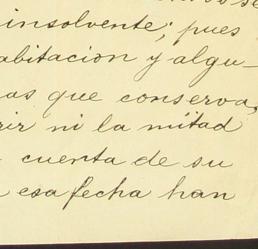 insolvente; pues
abitacion y algu-
as que conserva,
rir ni la mitad
cuenta de su
esa fecha han